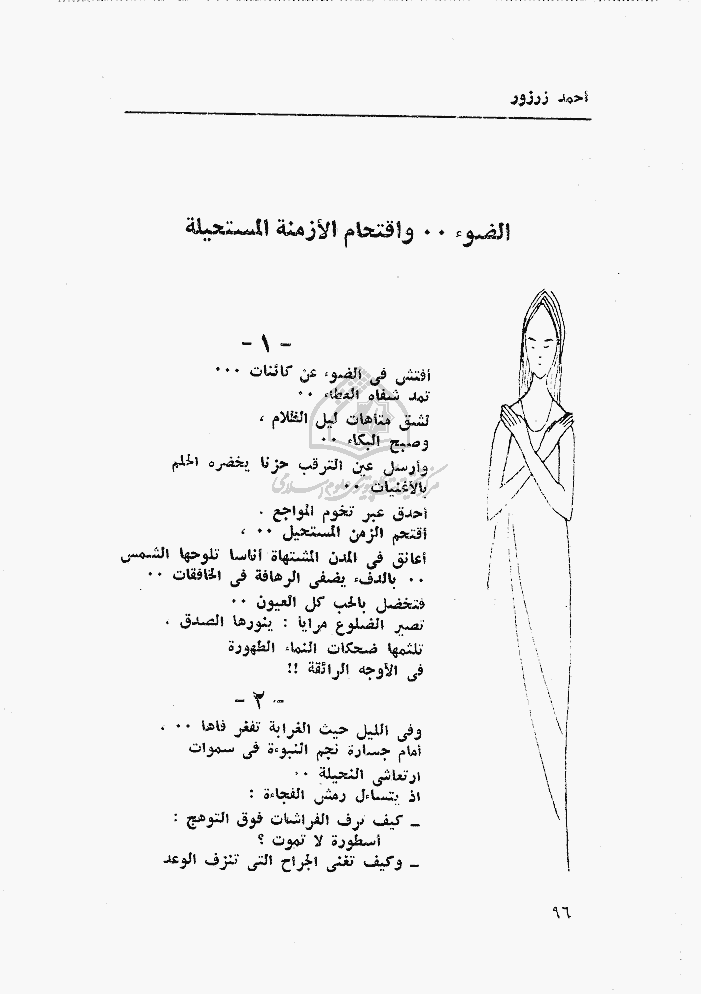 أحمد زرزور
الضوء ٠٠ واقتحام الأزمنة المستحيلة
- ١ -
أفتش فى الضوء عن كائنات ٠٠٠
تمد شفاه العطاء ٠٠
لشق متاهات ليل الظلام ،
وصبح البكاء ٠٠
وأرسل عين الترقب حزنا يخضره الحلم
بالأغنيات ٠٠
أحدق عبر تخوم المواجع .
أقتحم الزمن المستحيل ٠٠ ،
أعانق فى المدن المشتهاة أناسا تلوحها الشمس
٠٠ بالدفء يضفى الرهافة فى الخافقات ٠٠
فتخضل بالحب كل العيون ٠٠
تصير الضلوع مرايا : ينورها الصدق .
تلثمها ضحكات النماء الطهورة
فى الأوجه الرائقة !!
- ٢ -
وفى الليل حيث الغرابة تفغر فاها ٠٠ .
أمام جسارة نجم النبوءة فى سموات
ارتعاشى النحيلة ٠٠
اذ يتساءل رمش الفجاءة :
ــ كيف ترف الفراشات فوق التوهج :
أسطورة لا تموت ؟
ــ وكيف تغنى الجراح التى تنزف الوعد
٩٦